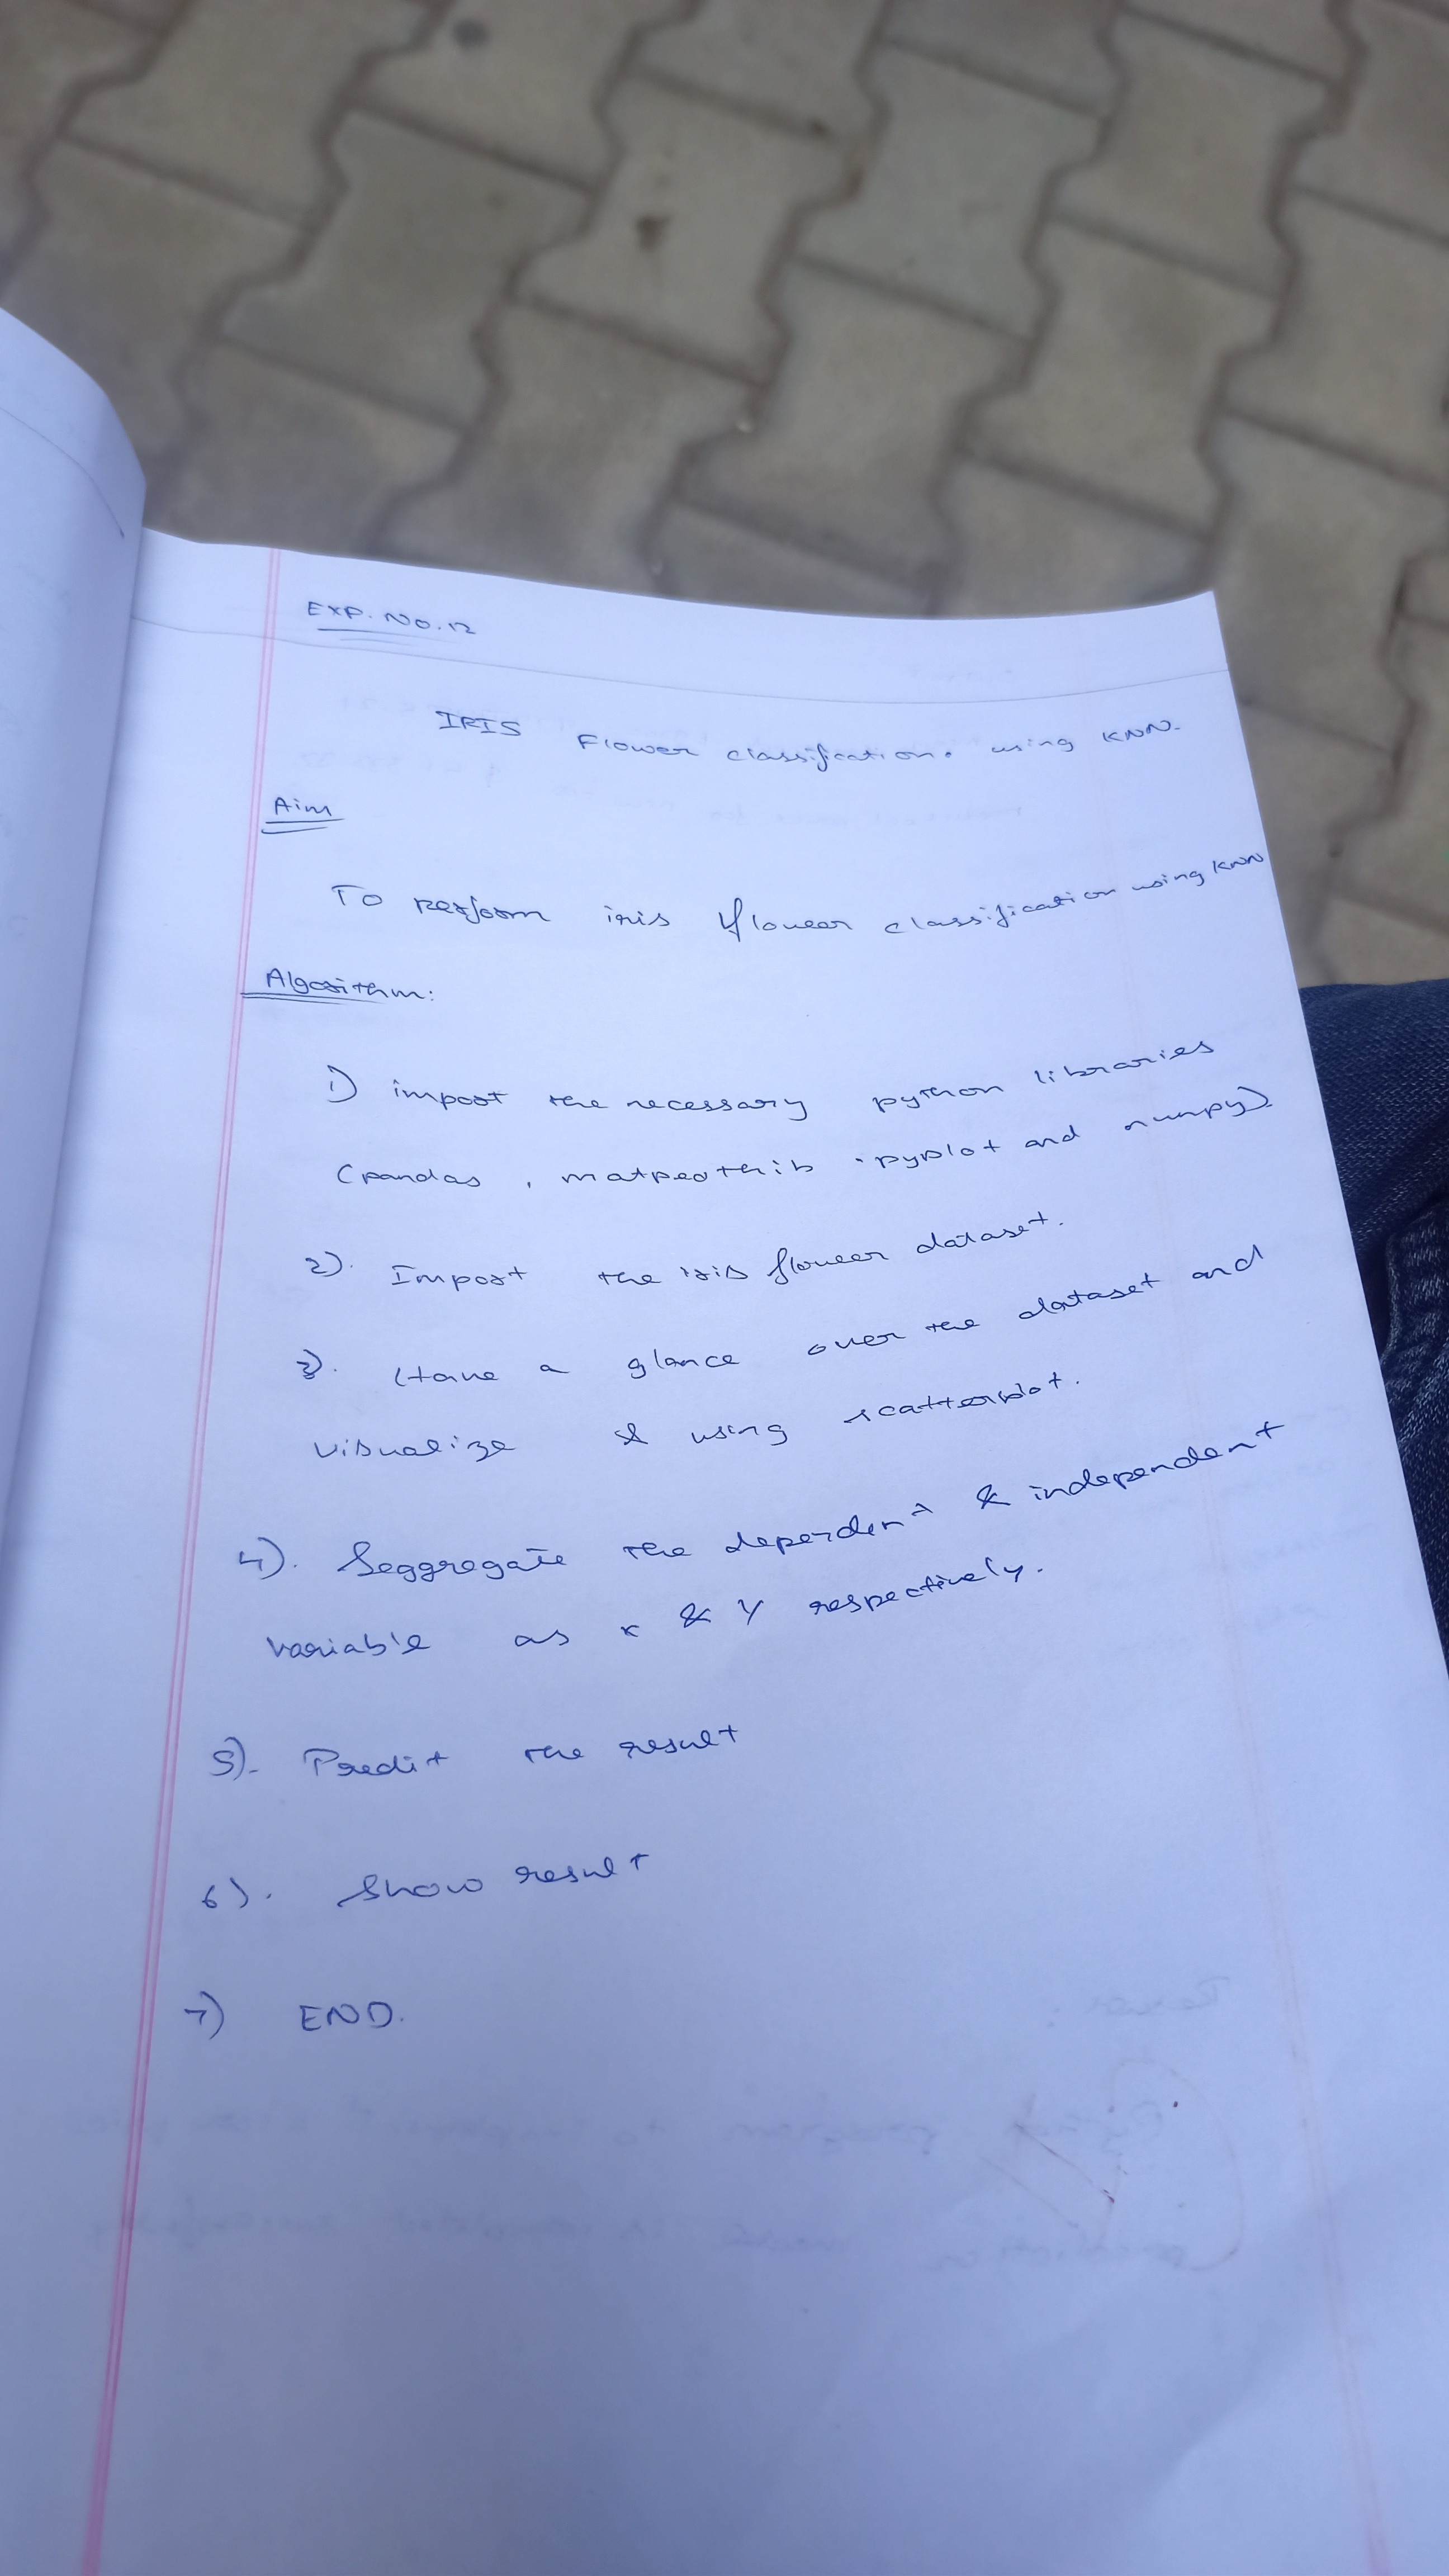 EXP. NO. 12
IRIS Flower classification. using KNN.
Aim
To perform iris flower classification using KNN
Algorithm:
1) import the necessary python libraries
(pandas, matpeothib .pyplot and numpy)
2). Import the iris flower dataset.
3). Have a glance over the dataset and
visualize using scatterplot.
4). Seggregate the dependent & independent
variable as x & y respectively.
5). Predit the result
6). Show result
7) END.